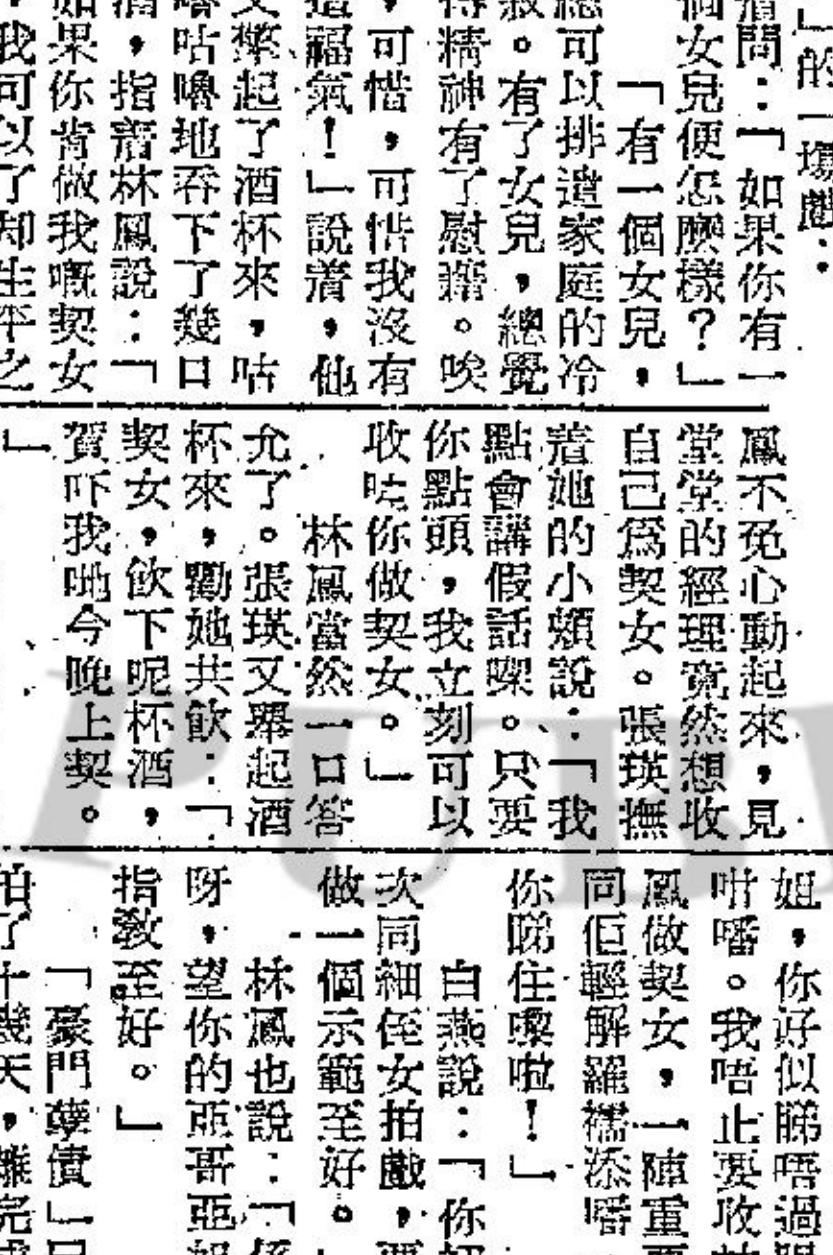 」的一場戲：
問：「如果你有一
個女兒便怎麼樣？」
「有一個女兒，
總可以排遣家庭的冷
寂。有了女兒，總覺
得精神有了慰藉。唉
，可惜，可惜我沒有
這福氣！」說着，他
又擎起了酒杯來，咕
嚕咕嚕地吞下了幾口
酒，指着林鳳說：「
如果你肯做我嘅契女
，我可以了却生平之
鳳不免心動起來，見
堂堂的經理竟然想收
自己爲契女。張瑛撫
着她的小頰說：「我
點會講假話㗎。只要
你點頭，我立刻可以
收咗你做契女。」
林鳳當然一口答
允了。張瑛又舉起酒
杯來，勸她共飲：「
契女，飲下呢杯酒，
賀吓我哋今晚上契。
」
姐，你好似睇唔過眼
咁噃。我唔止要收林
鳳做契女，一陣重要
同佢輕解羅襦添噃
你睇住嚟啦！」
白燕說：「你初
次同細侄女拍戲，要
做一個示範至好。」
林鳳也說：「係
呀，望你的亞哥亞姐
指敎至好。」
「豪門孽債」已
拍了十幾天，離完成